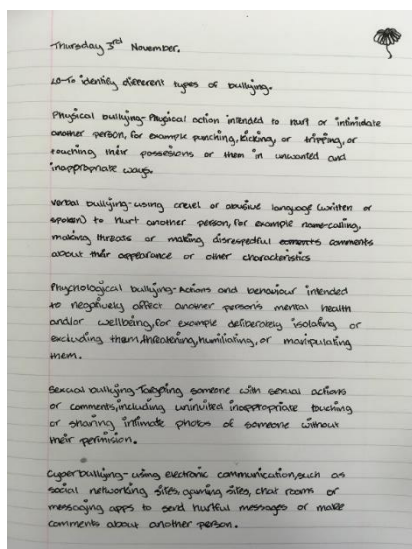 Thursday 3rd November.
LO-To identify different types of bullying.
Physical bullying-Physical action intended to hurt or intimidate
another person, for example punching, kicking, or tripping, or
touching their possesions or them in unwanted and
inappropriate ways.
Verbal bullying-using cruel or abusive language (written or
spoken) to hurt another person, for example name-calling,
making threats or making disrespedful comments
about their appearance or other characteristics
Phycnological bullying-Actions and behaviour intended
to negatively affect another person's mental health
and/or wellbeing, for example deliberately isolating or
excluding them, threatening, humiliating, or manipulating
them.
Sexual bullying-Targeting someone with sexual actions
or comments, including uninvited inappropriate touching
or sharing intimate photos of someone without
their permision.
Cyberbullying-using electronic communication, such as
social networking sites, gaming sites, chat rooms or
messaging apps to send hurtful messages or make
comments about another person.